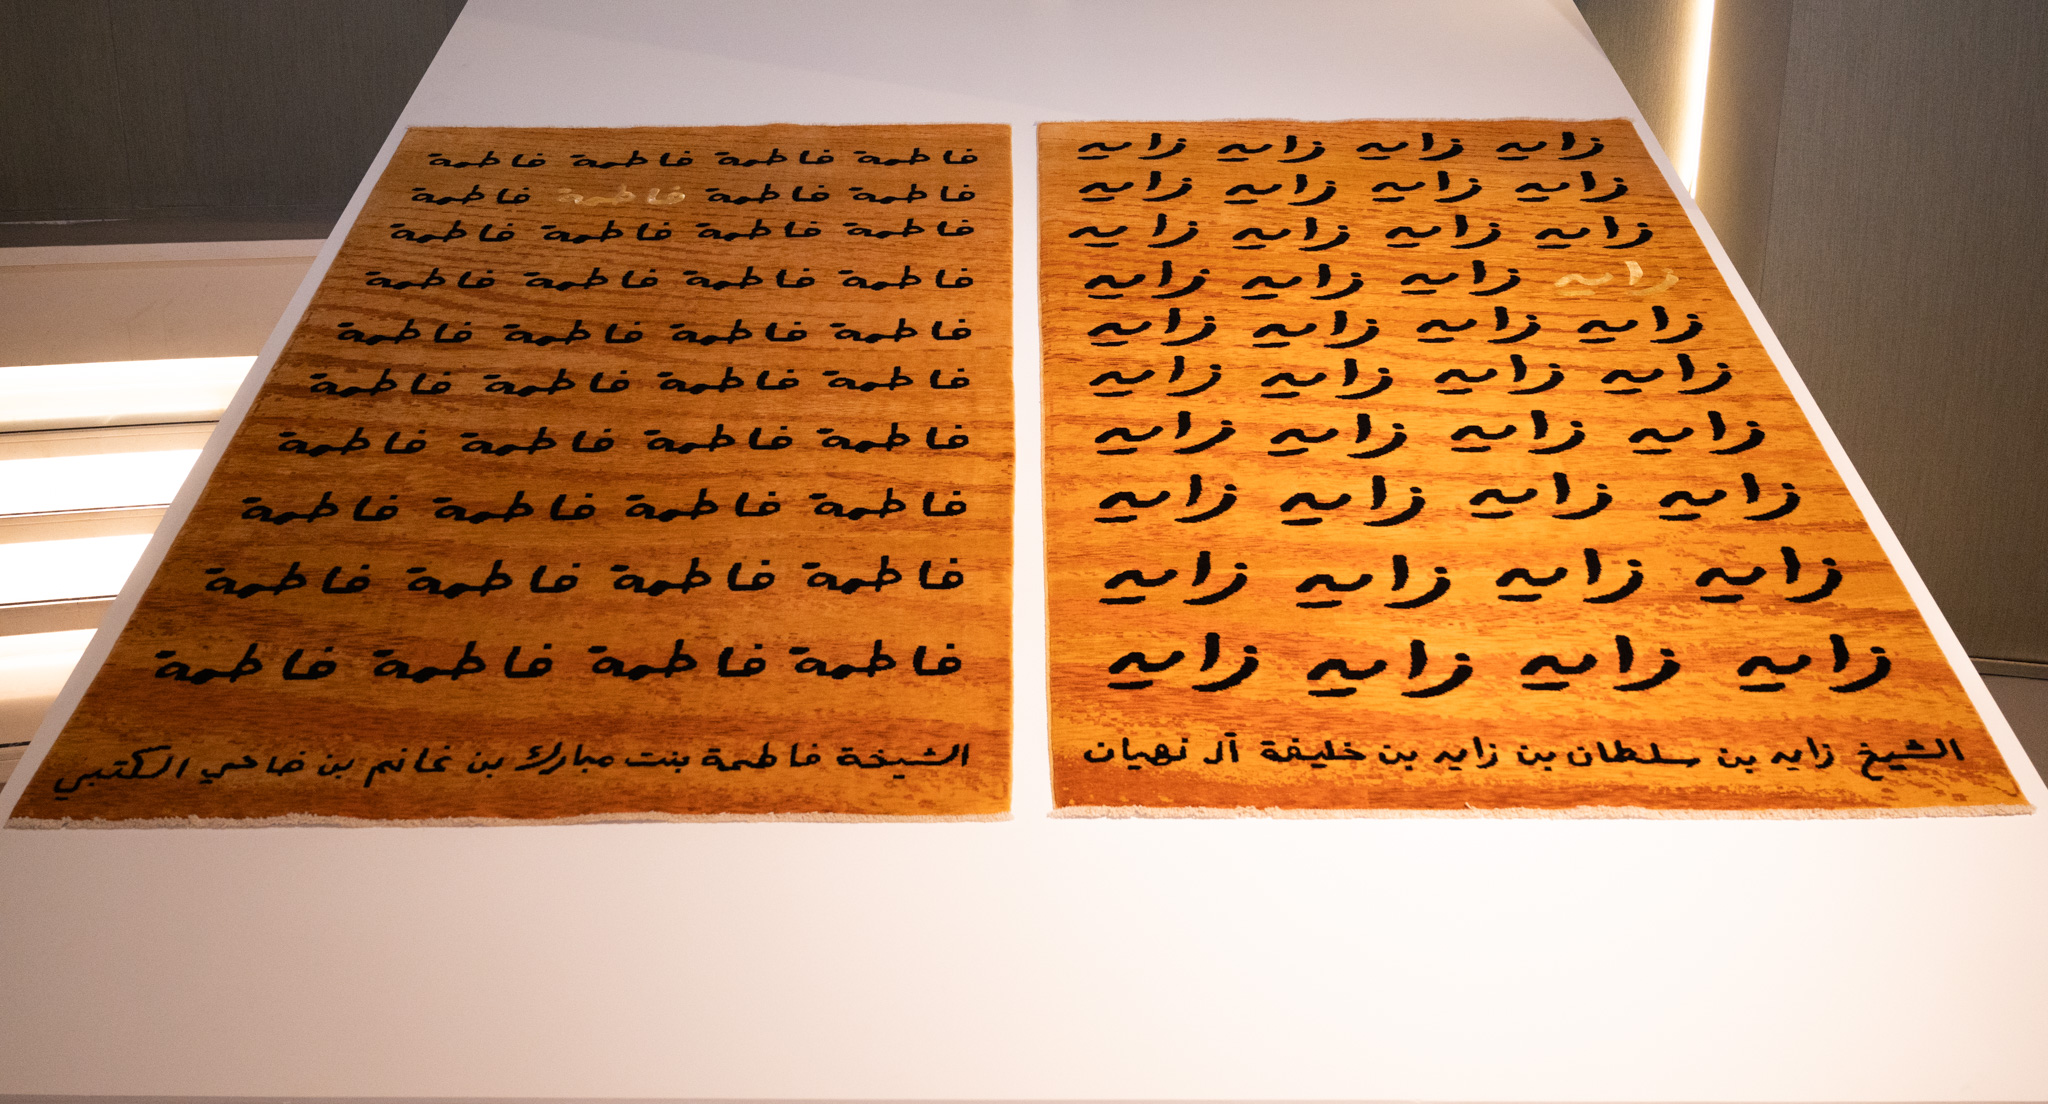 زايد زايد زايد زايد
زايد زايد زايد زايد
زايد زايد زايد زايد
زايد زايد زايد زايد
زايد زايد زايد زايد
زايد زايد زايد زايد
زايد زايد زايد زايد
زايد زايد زايد زايد
زايد زايد زايد زايد
زايد زايد زايد زايد
الشيخ زايد بن سلطان بن زايد بن خليفة آل نهيان
فاطمة فاطمة فاطمة فاطمة
فاطمة فاطمة فاطمة فاطمة
فاطمة فاطمة فاطمة فاطمة
فاطمة فاطمة فاطمة فاطمة
فاطمة فاطمة فاطمة فاطمة
فاطمة فاطمة فاطمة فاطمة
فاطمة فاطمة فاطمة فاطمة
فاطمة فاطمة فاطمة فاطمة
فاطمة فاطمة فاطمة فاطمة
فاطمة فاطمة فاطمة فاطمة
الشيخة فاطمة بنت مبارك بن غانم بن ضاحي الكتبي